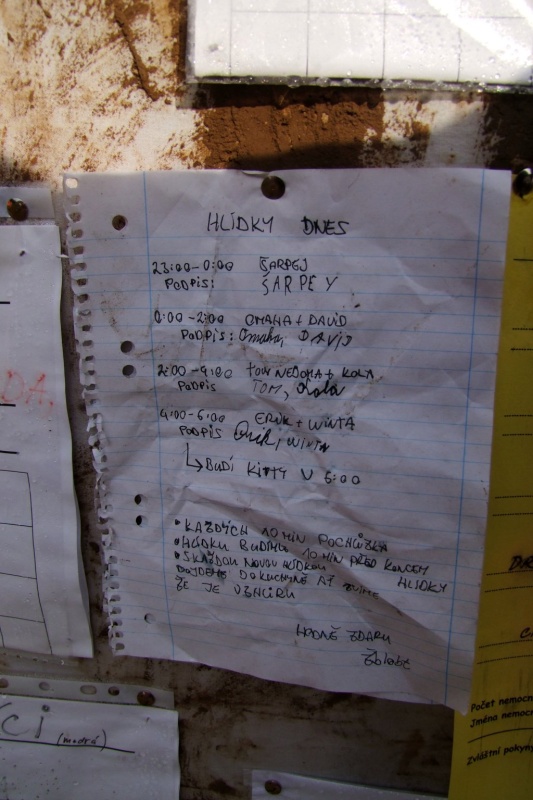 HLÍDKY DNES
23:00-0:00 ŠARPEJ
PODPIS: ŠARPEY
0:00-2:00 OMAHA + DAVID
PODPIS: Omaha, DAVID
2:00-4:00 TOM NEDOMA + KOLA
PODPIS TOM, Kola
4:00-6:00 ERIK + WINTA
PODPIS Erik, WINTA
↳BUDÍ KITTY V 6:00
• KAŽDÝCH 10 MIN POCHŮZKA
• HLÍDKU BUDÍME 10 MIN PŘED KONCEM HLÍDKY
• S KAŽDOU NOVOU HLÍDKOU
DOJDEME DO KUCHYNĚ AŤ VÍME
ŽE JE VZHŮRU
HODNĚ ZDARU
DA,
ČÍ (modrá)
Počet nemocn
Jména nemocn
Zvláštní pokyny